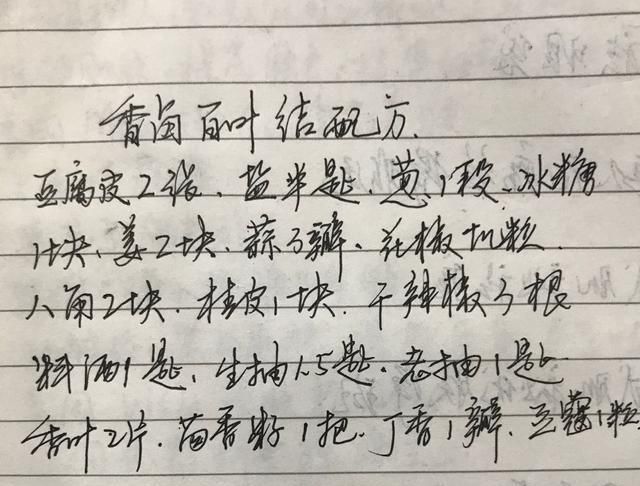 香卤百叶结配方.
豆腐皮2张、盐半匙、葱1段、冰糖
1块、姜2块、蒜3瓣、花椒九粒.
八角2块、桂皮1块、干辣椒3根
料酒1匙、生抽1.5匙、老抽1匙
香叶2片、茴香籽1把、丁香1瓣、豆蔻1粒